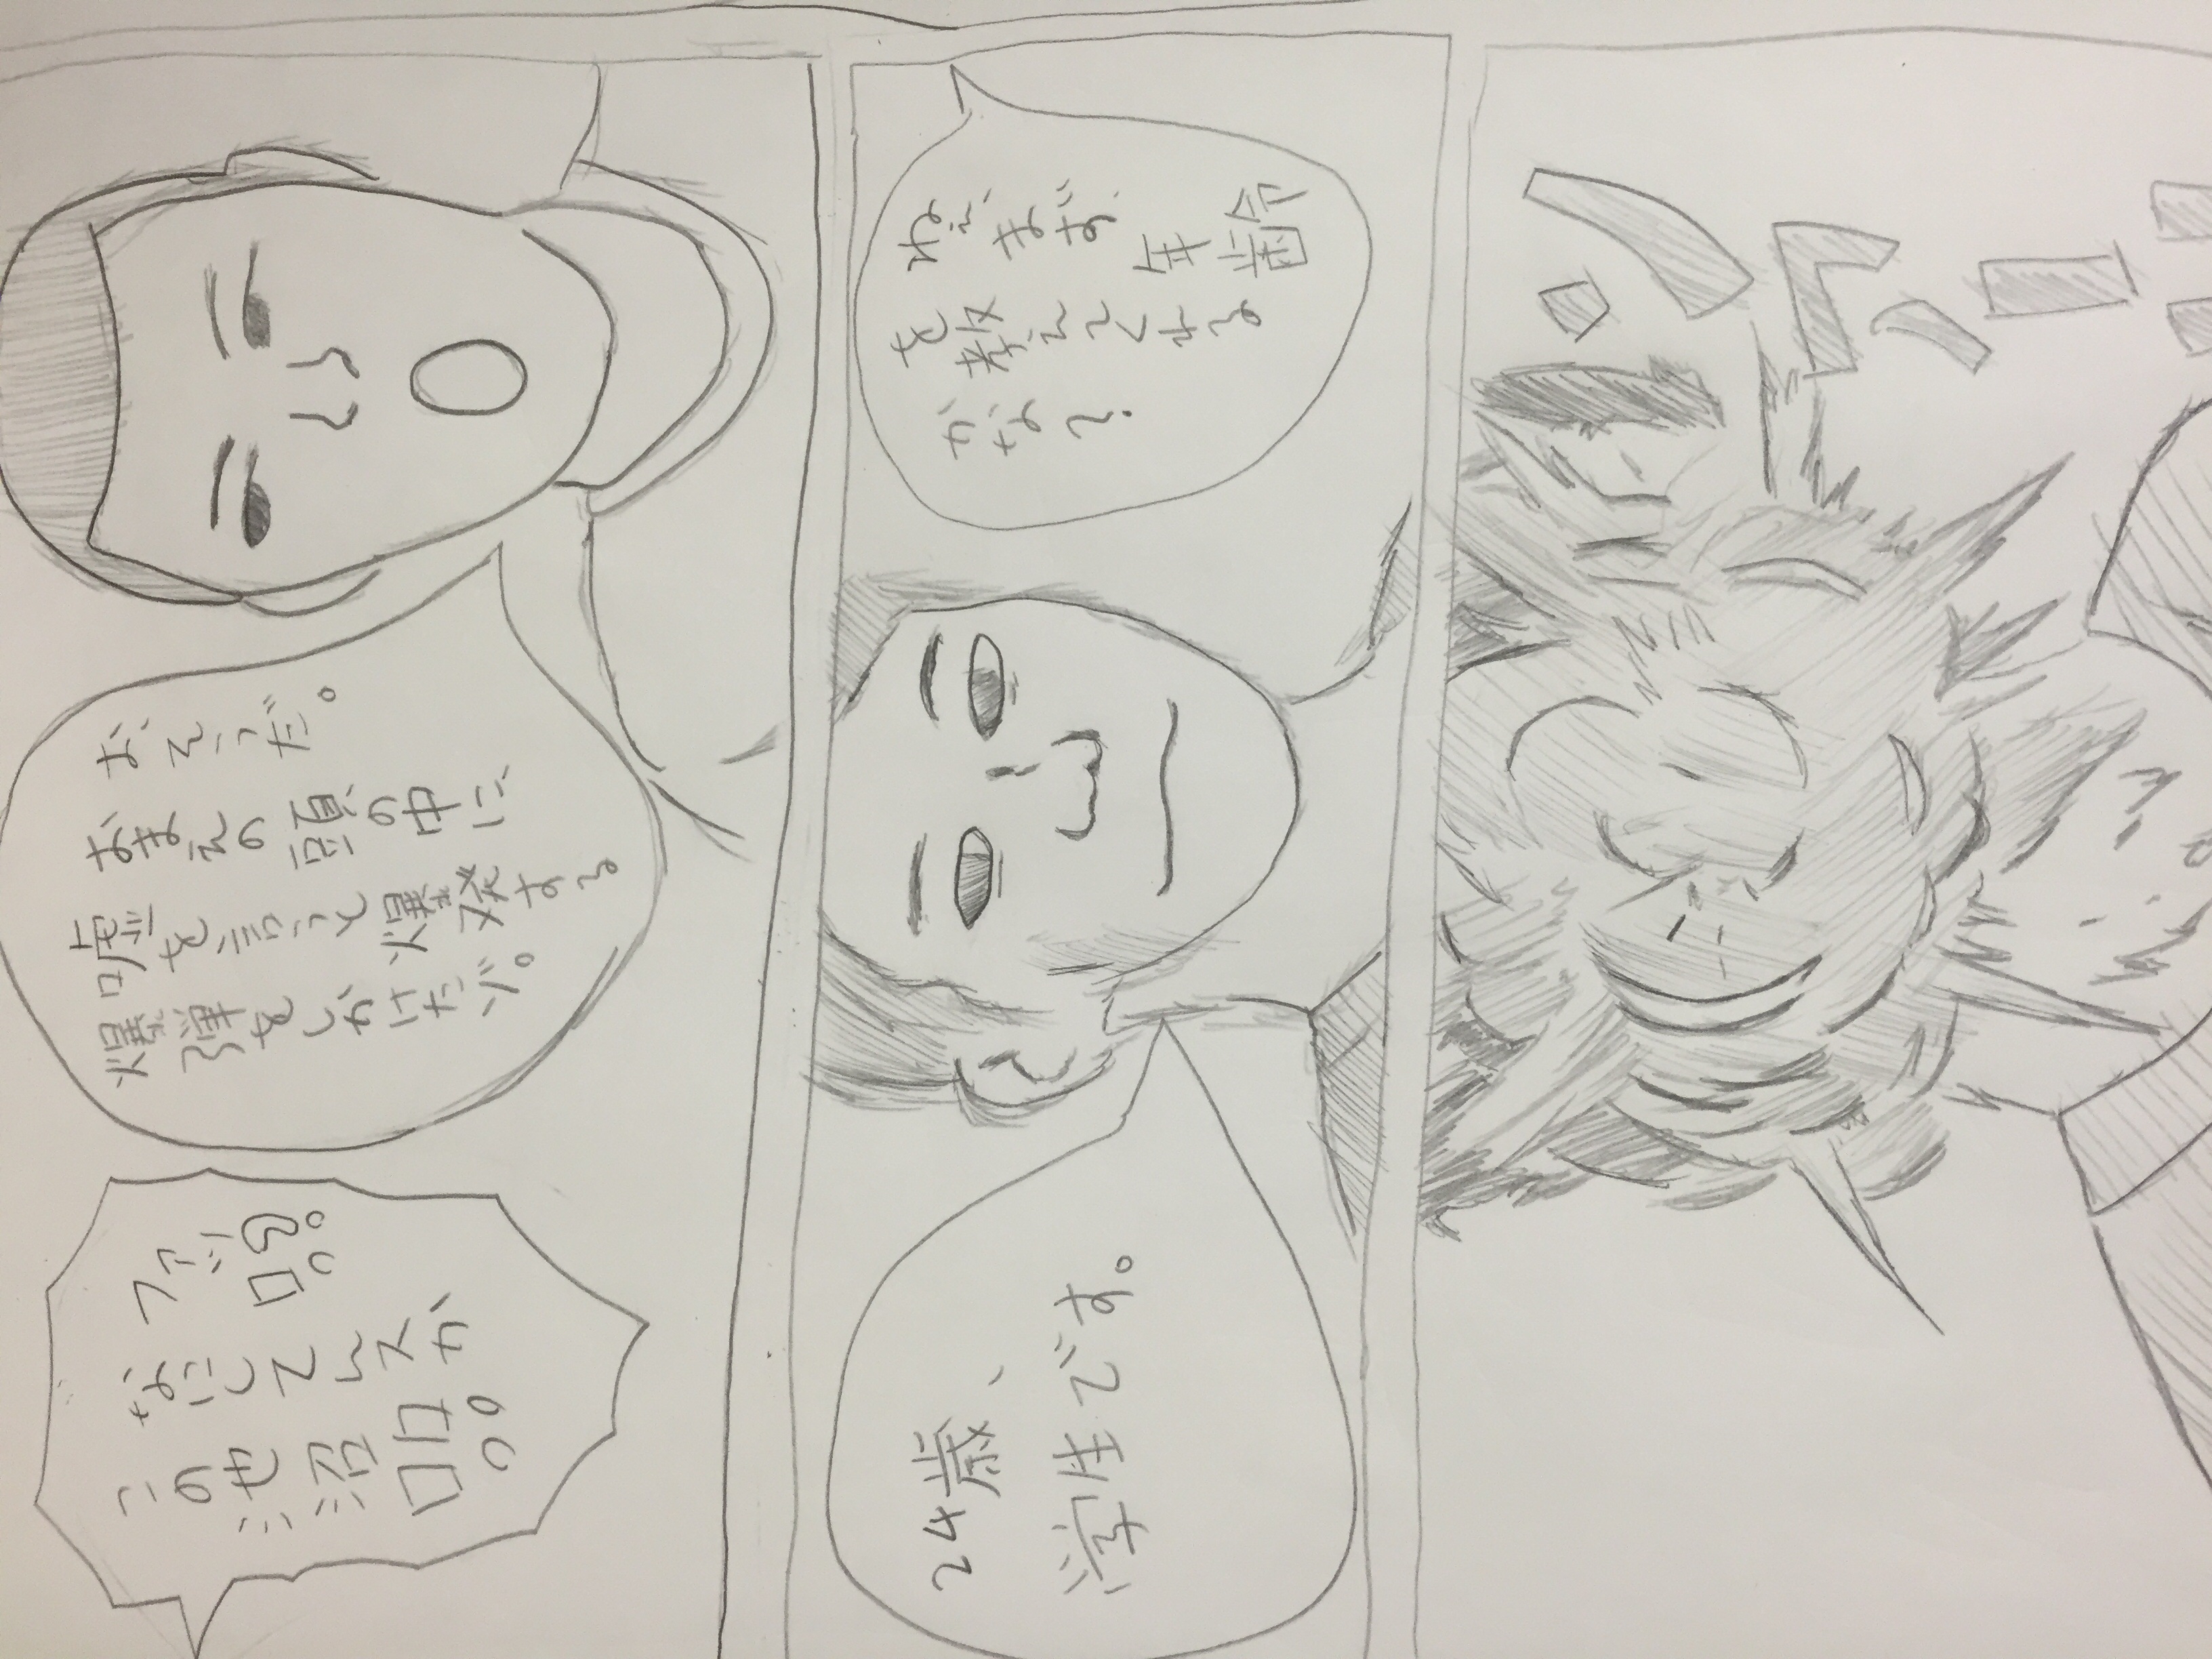 お、そうだ。
おまえの頭の中に、
嘘を言うと爆発する
爆弾をしかけたゾ。
ファッ!?
なにしてんスか
この池沼!!
ねぇ、まず、年齢
を教えてくれる
かな?
24歳、
学生です。